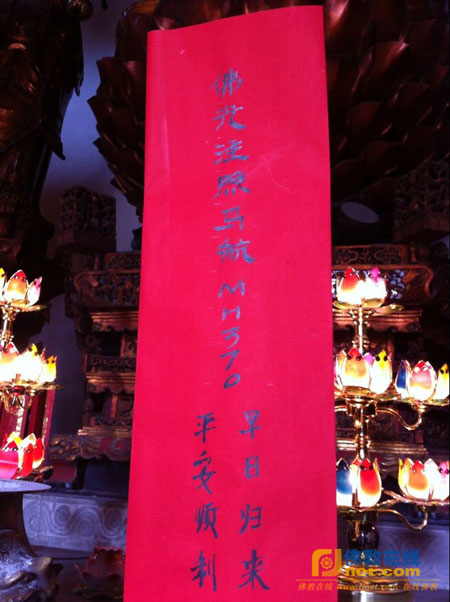 佛光注照马航MH370
早日归来
平安顺利
佛教在线
Fjnet.com
佛教在线 www.fjnet.com 在线佛教